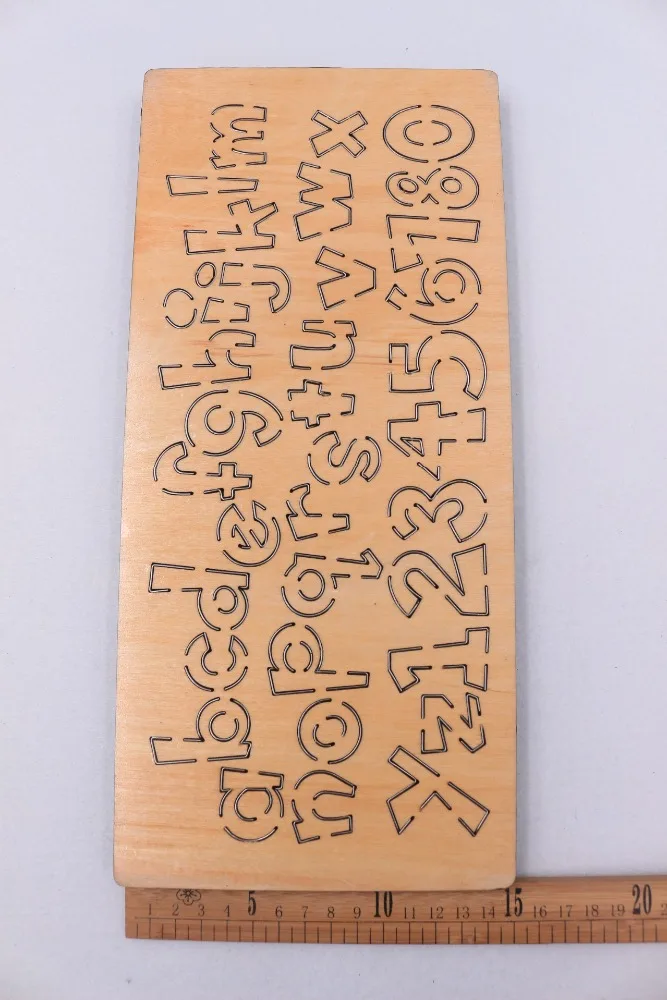 abcdefghijklm
nopqrstuvwx
yz123456780
1 2 3 4 5 6 7 8 9 10 11 12 13 14 15 16 17 18 19 20